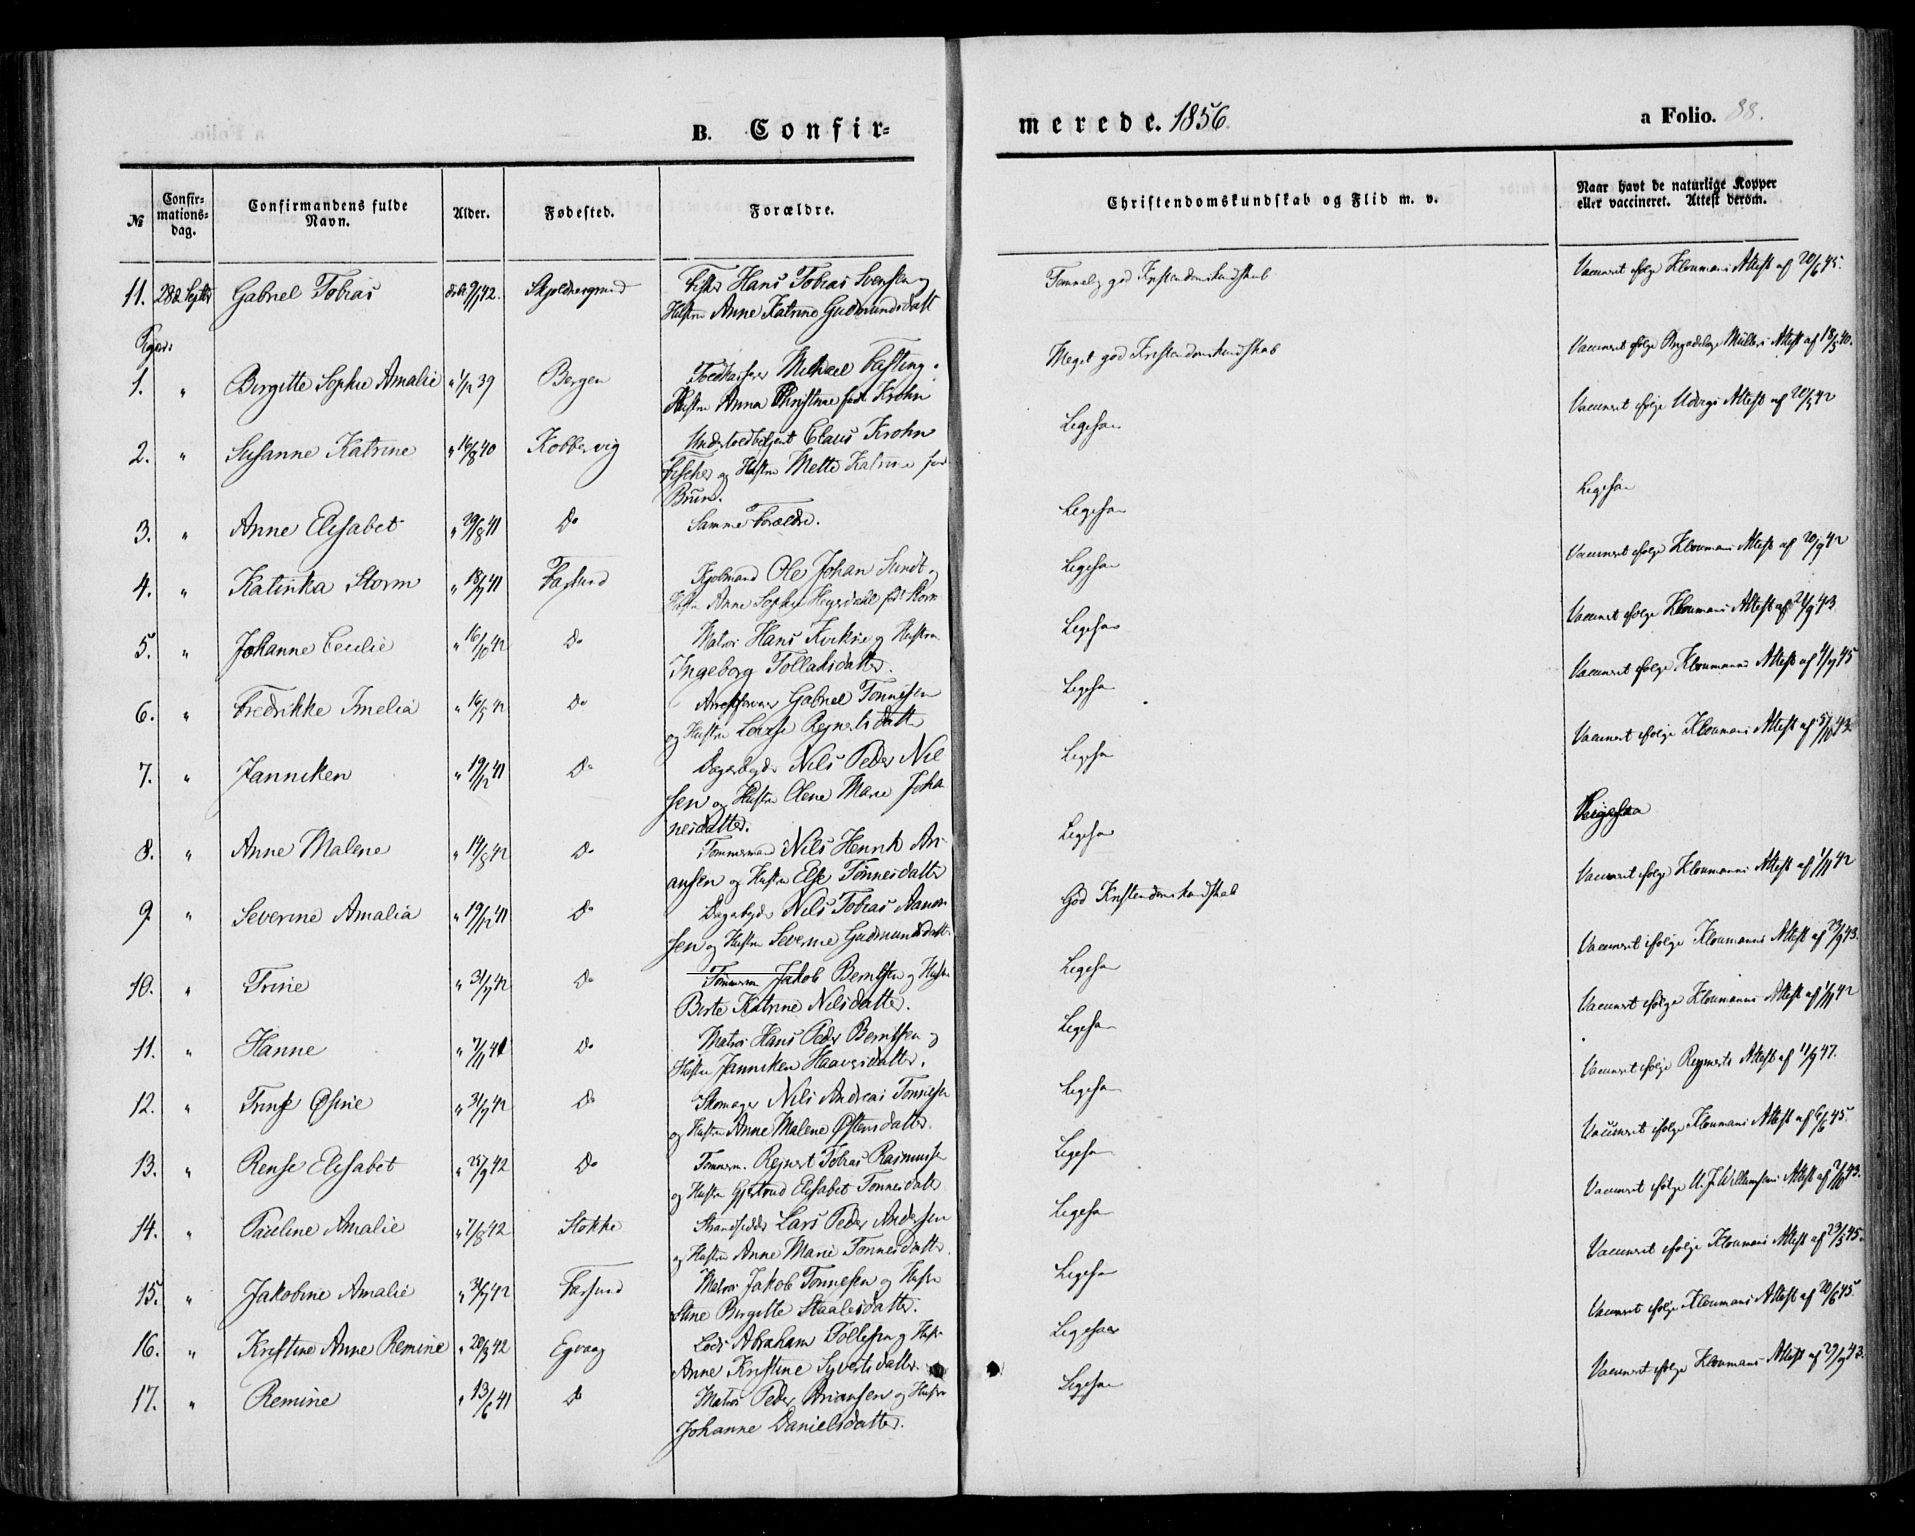 B. Confir=
merede. 1856.
a Folio. 88.
№
Confir-
mations-
dag.
Confirmandens fulde
Navn.
Alder.
Fødested.
Forældre.
Christendomskundskab og Flid m. v.
Naar havt de naturlige Kopper
eller vaccineret. Attest derom.
11. 28de Septbr Gabriel Tobias 42. Hans Tobias Svensen og
Hustru Anne Katrine Gudmundsdatt
Temmelig god Kristendomskundskab
Vaccinert ifølge Kloumans Attest af 20/6 45.
Piger:
1. " Birgitte Sophie Amalie " 1/12 39 Bergen Michael Fasting
Hustru Anna Christine født Krohn
Meget god Kristendomskundskab
Vaccinert ifølge Müllers Attest af 18/5 40.
2. " Susanne Katrine " 16/8 40 Kobbervig Claus Krohn
Fischer og Hustru Mette Katrine fød
Brun.
Ligesaa
Vaccinert ifølge Attest af 20/5 42
3. " Anne Elisabet " 29/8 41 Do Samme Forældre.
Ligesaa
Ligesaa
4. " Katinka Storm " 18/7 41 Farsund Kjøbmand Ole Johan Sundt og
Hustru Anne Sophie født Storm
Ligesaa
Vaccinert ifølge Kloumans Attest af 20/9 42
5. " Johanne Cecilie " 16/10 42 Do Matros Hans og Hustru
Ingeborg Tollaksdatter.
Ligesaa
Vaccinert ifølge Kloumans Attest af 43.
6. " Fredrikke Imelia " 16/5 42 Do Gabriel Tønnesen
og Hustru Lovise Rejnertsdatter
Ligesaa
Vaccinert ifølge Kloumanns Attest af 45
7. " Janniken " 19/12 41 Do Nils Peder Niel
sen og Hustru Olene Marie Joha
nesdatter.
Ligesaa
Vaccinert ifølge Kloumans Attest af 43
8. " Anne Malene " 14/8 42 Do Tømmermand Nils Henrik Ari
ansen og Hustru Else Tønnesdatter
Ligesaa
Ligesaa
9. " Severine Amalia " 19/12 41 Do Nils Tobias Aanen
sen og Hustru Severine Gudmundsdatt
God Kristendomskundskab
Vaccinert ifølge Kloumanns Attest af 1/11 42
10. " Trine " 31/7 42 Do Tømmerm Jakob Berntsen og Hustru
Birte Katrine Nilsdatter.
Ligesaa
Vaccinert ifølge Kloumanns Attest af 43.
11. " Hanne " 7/11 41 Do Matros Hans Peder Berntsen og
Hustru Janniken Haaversdatter.
Ligesaa
Vaccinert ifølge Kloumanns Attest af 1/11 42
12. " Trine Øsine " 31/7 42 Do Skomager Nils Andreas Tønnesen
og Hustru Anne Malene Østensdatter.
Ligesaa
Vaccinert ifølge Reymerts Attest af 11/9 47.
13. " Rense Elisabet " 25/9 42 Do Tømmerm. Rejnert Tobias Rasmussen
og Hustru Gjertrud Elisabet Tønnesdatter
Ligesaa
Vaccinert ifølge Kloumans Attest af 6/6 45.
14. " Pauline Amalie " 7/8 42 Stokke Strandsidder Lars Peder Andersen
og Hustru Anne Marie Tønnesdatter.
Ligesaa
Vaccinert ifølge Attest af 43.
15. " Jakobine Amalie " 31/7 42 Farsund Matros Jakob Tønnesen og Hustru
Stine Birgitte Staalesdatter.
Ligesaa
Vaccinert ifølge Kloumans Attest af 23/5 45.
16. " Kristine Anne Remine " 20/3 42 Egvaag Lods Abraham Tollefsen og Hustru
Anne Kristine Syvertsdatter.
Ligesaa
Vaccinert ifølge Kloumans Attest af 20/6 45.
17. " Remine " 13/6 41 Do Matros Peder Ariansen og Hustru
Johanne Danielsdatter.
Ligesaa
Vaccinert ifølge Kloumans Attest af 27/9 43.